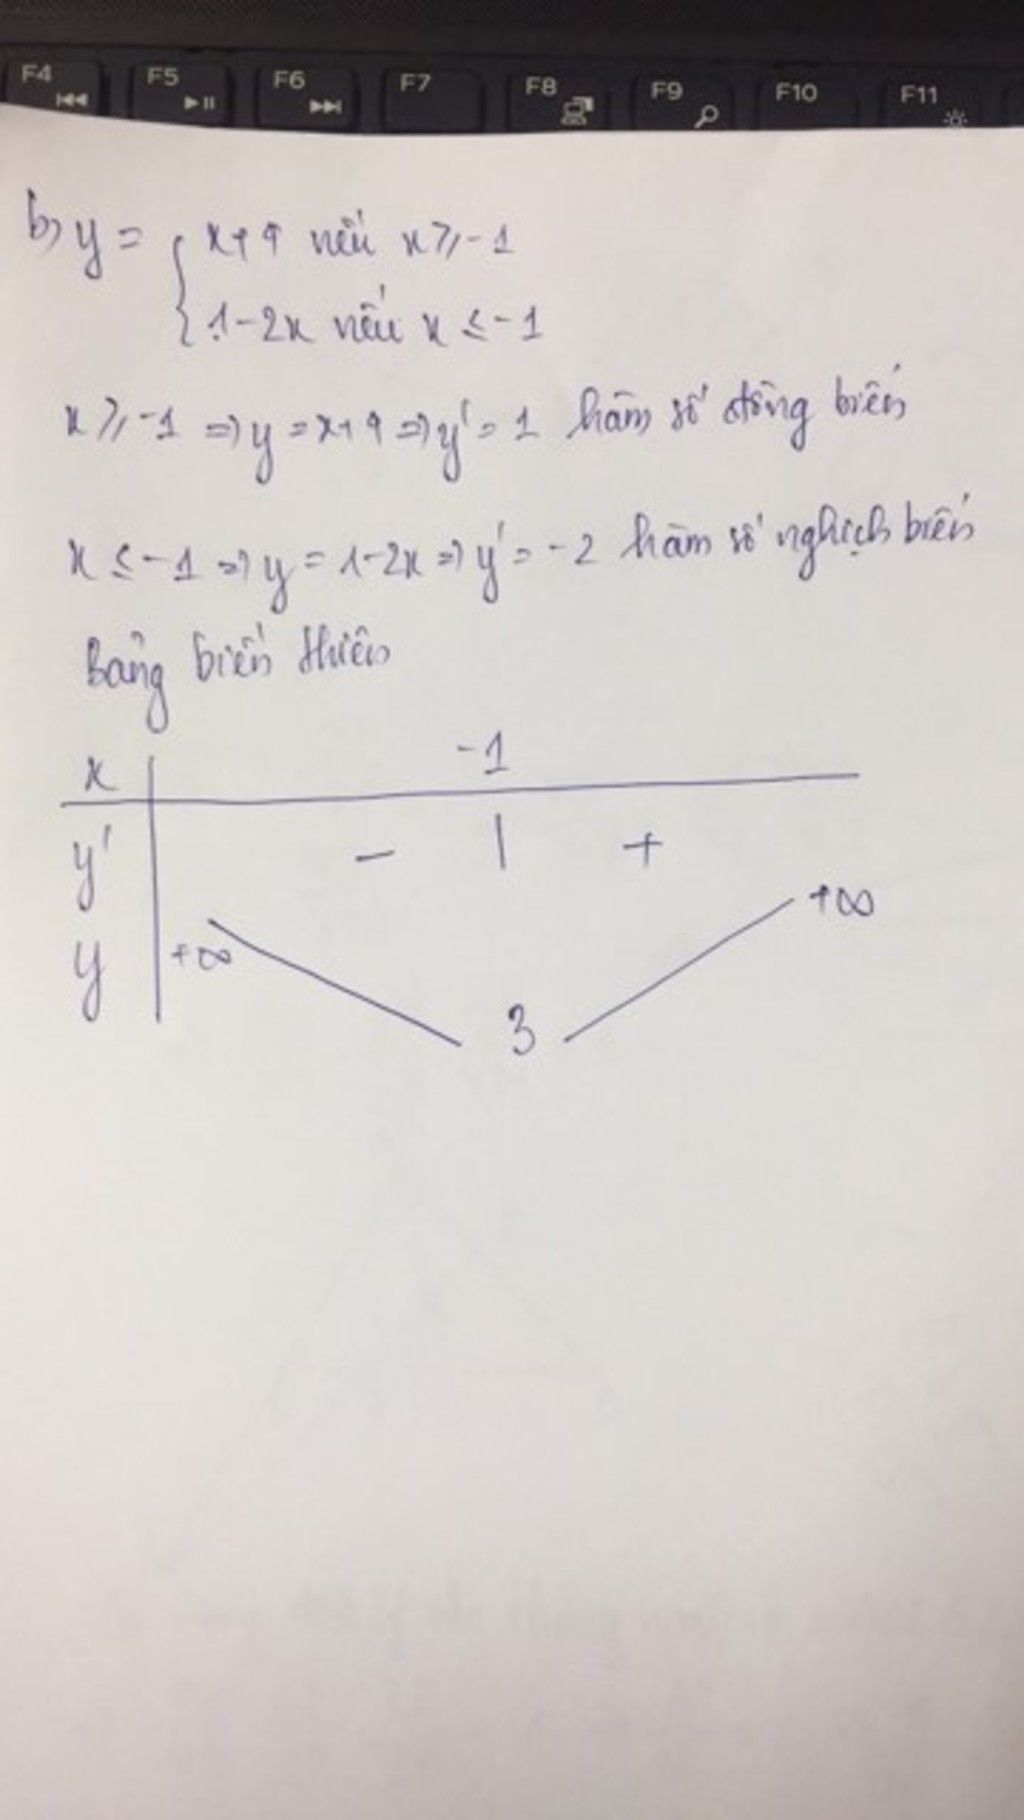 F4 F5 F6 F7 F8 F9 F10 F11
b) y = { x+4 nếu x ≥ -1
1-2x nếu x ≤ -1
x ≥ -1 => y = x+4 => y' = 1 hàm số đồng biến
x ≤ -1 => y = 1-2x => y' = -2 hàm số nghịch biến
Bảng biến thiên
x -1
y' - | +
y +∞ 3 +∞